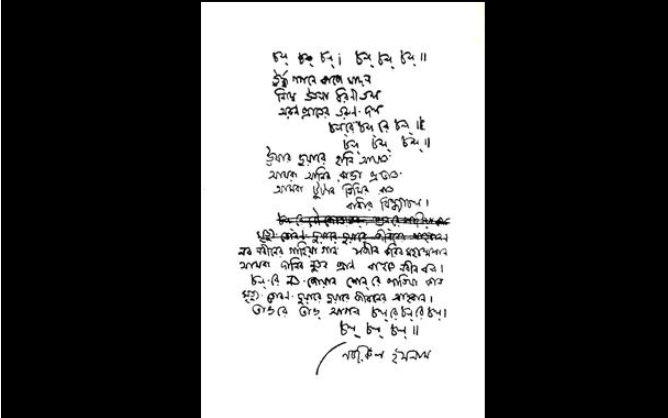 চল্ চল্ চল্। চল্ চল্ চল্॥
ঊর্দ্ধ গগনে বাজে মাদল
নিম্নে উতলা ধরণী তল
অরুণ প্রাতের তরুণ-দল
চল্ রে চল্ রে চল্॥
চল্ চল্ চল্॥
ঊষার দুয়ারে হানি আঘাত
আমরা আনিব রাঙা প্রভাত
আমরা টুটাব তিমির রাত
বাধার বিন্ধ্যাচল।
নব নবীনের গাহিয়া গান সজীব করিব মহাশ্মশান
আমরা দানিব নূতন প্রাণ বাহুতে নবীন বল।
চল্ রে নও-জোয়ান শোন্ রে পাতিয়া কান
মৃত্যু-তোরণ-দুয়ারে দুয়ারে জীবনের আহ্বান।
ভাঙ রে ভাঙ আগল চল্ রে চল্ রে চল্।
চল্ চল্ চল্॥
নজরুল ইসলাম